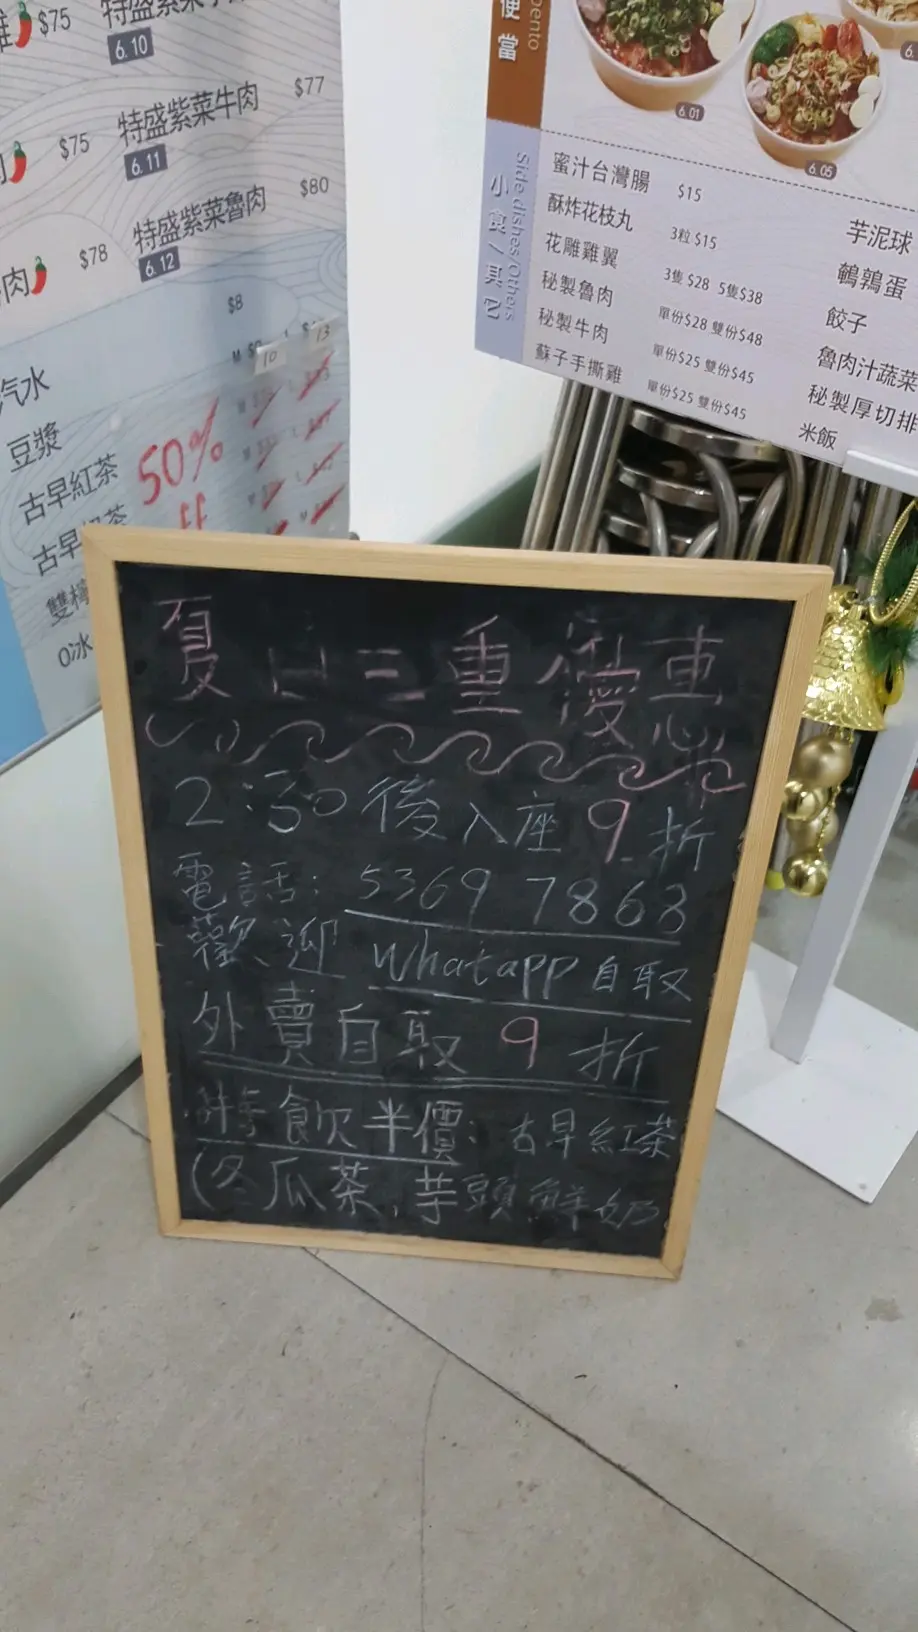 $75
6.10
$75
特盛紫菜牛肉
$77
6.11
肉
$78
特盛紫菜魯肉
$80
6.12
$8
10
13
汽水
豆漿
古早紅茶
50%
off
0冰
便當
bento
6.01
6.05
小食/其它
Side dishes/Others
蜜汁台灣腸 $15
酥炸花枝丸 3粒 $15
花雕雞翼 3隻 $28 5隻$38
秘製魯肉 單份$28 雙份$48
秘製牛肉 單份$25 雙份$45
蘇子手撕雞 單份$25 雙份$45
芋泥球
鵪鶉蛋
餃子
魯肉汁蔬菜
秘製厚切排
米飯
夏日三重優惠
2:30後入座9折
電話: 5369 7868
歡迎 Whatapp 自取
外賣自取 9折
飲半價: 古早紅茶
(冬瓜茶, 芋頭鮮奶